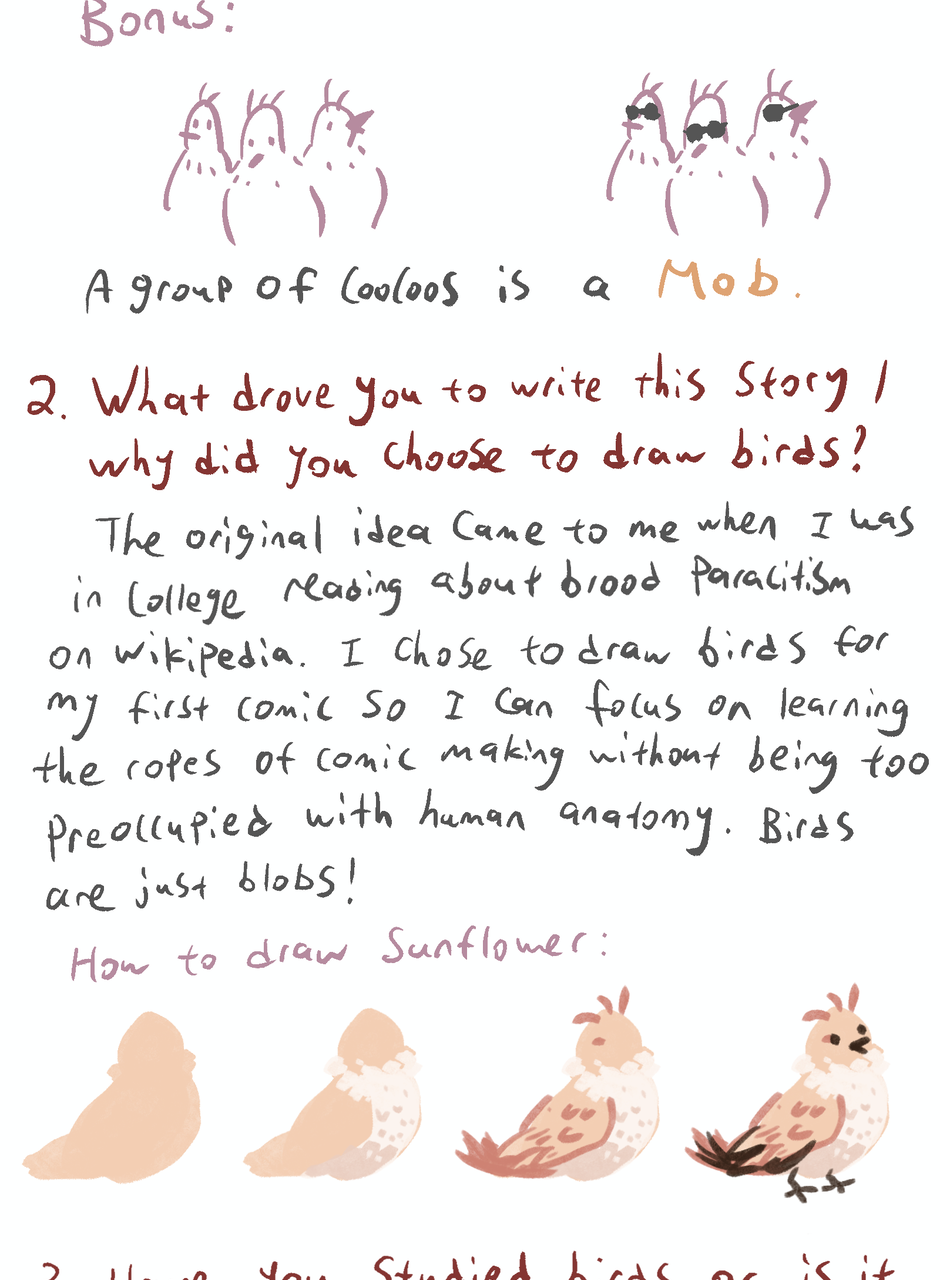 Bonus:
A group of CooCoos is a Mob.
2. What drove you to write this Story /
why did you choose to draw birds?
The original idea Came to me when I was
in College reading about brood Paracitism
on wikipedia. I chose to draw birds for
my first comic So I Can focus on learning
the ropes of comic making without being too
Preoccupied with human anatomy. Birds
are just blobs!
How to draw Sunflower:
3. Have you Studied birds or is it